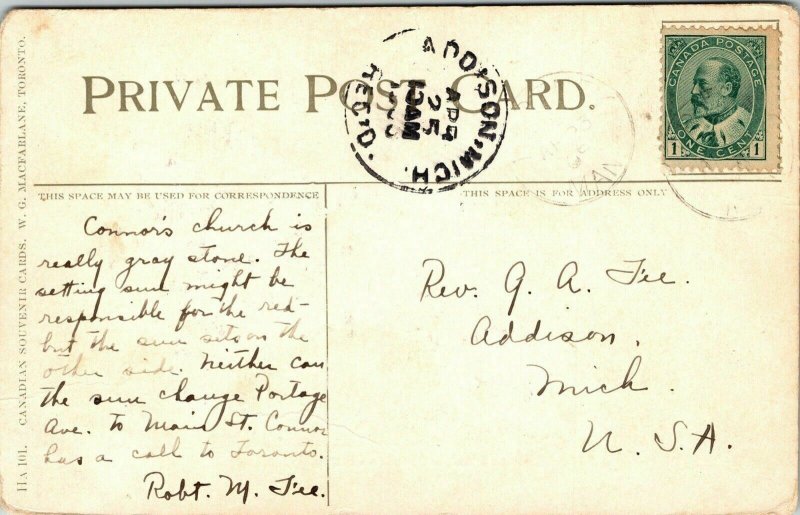 PRIVATE POST CARD.
ADDISON, MICH.
APR
25
10AM
REC'D.
CANADA POSTAGE
1 ONE CENT 1
THIS SPACE MAY BE USED FOR CORRESPONDENCE
THIS SPACE IS FOR ADDRESS ONLY
Connor's church is
really gray stone. The
setting sun might be
responsible for the red-
but the sun sits on the
other side. Neither can
the sun change Portage
Ave. to Main St. Connor
has a call to Toronto.
Robt. M. Fee.
Rev. G. A. Fee.
Addison,
Mich.
U. S. A.
11A 101. CANADIAN SOUVENIR CARDS. W. G. MACFARLANE, TORONTO.